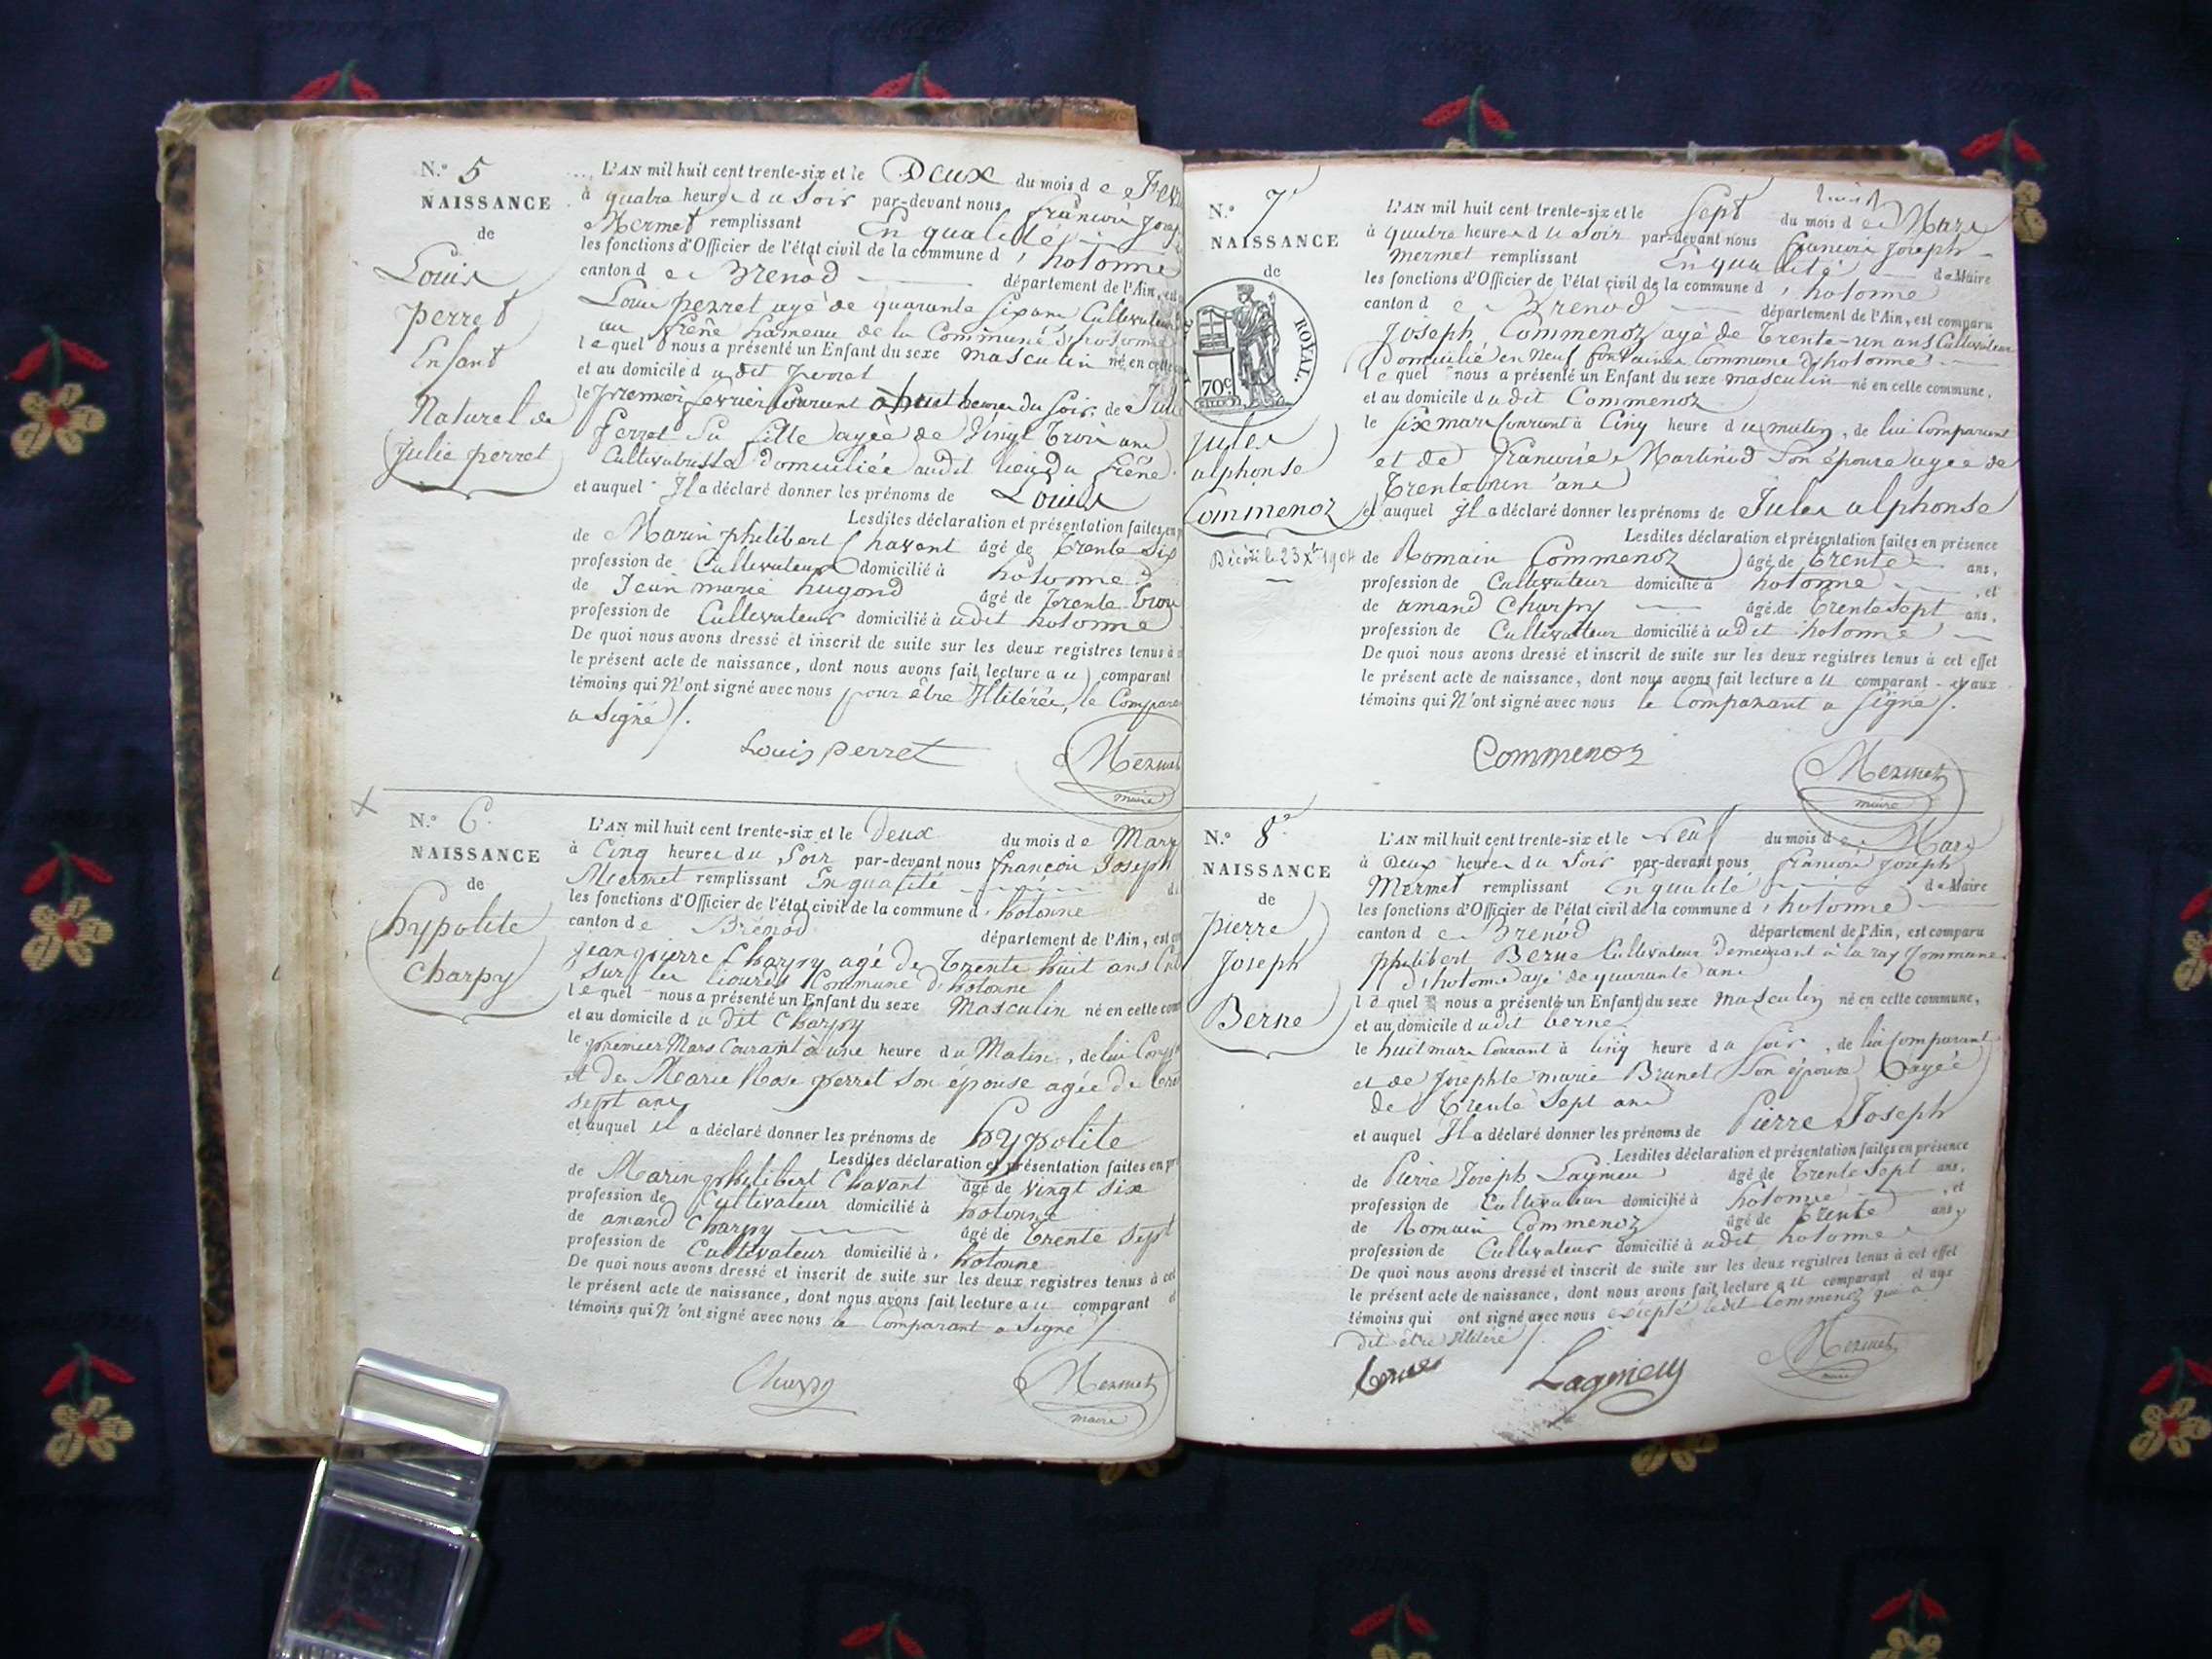 N.º 5
NAISSANCE
de
Louis
perret
Enfant
Naturel de
Julie perret
L'AN mil huit cent trente-six et le Deux du mois d e
à quatre heures du Soir par-devant nous françois
Mermet remplissant En qualité
les fonctions d'Officier de l'état civil de la commune d'hotonne
canton de Brenod département de l'Ain,
Louis perret agé de quarante six ans Cultivateur
au frêne hameau de la Commune d'hotonne
lequel nous a présenté un Enfant du sexe masculin né en cette
et au domicile dudit perret
le premier fevrier Courant à huit heures du soir, de Julie
perret Sa fille agée de Vingt trois ans
Cultivatrice domiciliée audit lieu du frêne
et auquel Il a déclaré donner les prénoms de Louis
Lesdites déclaration et présentation faites en
de Marin philibert Chavent âgé de Trente Six
profession de Cultivateur domicilié à hotonne
de Jean marie hugond âgé de Trente trois
profession de Cultivateur domicilié à udit hotonne
De quoi nous avons dressé et inscrit de suite sur les deux registres tenus à
le présent acte de naissance, dont nous avons fait lecture au comparant
témoins qui N'ont signé avec nous pour être Illitérés, le
a Signé /.
Louis perret
Mermet
maire
N.º 6
NAISSANCE
de
hypolite
Charpy
L'AN mil huit cent trente-six et le deux du mois de Mars
à Cinq heures du Soir par-devant nous françois Joseph
Mermet remplissant En qualité
les fonctions d'Officier de l'état civil de la commune d'hotonne
canton de Brénod département de l'Ain,
jean pierre Charpy agé de Trente huit ans
Sur les Commune d'hotonne
lequel nous a présenté un Enfant du sexe Masculin né en cette
et au domicile dudit Charpy
le premier Mars Courant à une heure du Matin, de lui
et de Marie Rose perret Son épouse agée de
sept ans
et auquel il a déclaré donner les prénoms de hypolite
Lesdites déclaration et présentation faites en
de Marin philibert Chavant âgé de vingt six
profession de Cultivateur domicilié à hotonne
de amand Charpy âgé de trente sept
profession de Cultivateur domicilié à hotonne
De quoi nous avons dressé et inscrit de suite sur les deux registres tenus à cet
le présent acte de naissance, dont nous avons fait lecture au comparant
témoins qui N'ont signé avec nous le Comparant a Signé /.
Charpy
Mermet
maire
N.º 7
NAISSANCE
de
ROYAL.
70c
jules
alphonse
Commenoz
Décédé le 23 Xbre 1904
L'AN mil huit cent trente-six et le Sept du mois de Mars
à quatre heures du soir par-devant nous françois Joseph
Mermet remplissant En qualité de Maire
les fonctions d'Officier de l'état civil de la commune d'hotonne
canton de Brenod département de l'Ain, est comparu
Joseph Commenoz agé de Trente-un ans Cultivateur
Domicilié en Neuf fontaines Commune d'hotonne
lequel nous a présenté un Enfant du sexe masculin né en cette commune,
et au domicile dudit Commenoz
le six mars Courant à Cinq heure du matin, de lui Comparant
et de françoise Martinod Son épouse agée de
Trente un ans
et auquel Il a déclaré donner les prénoms de Jules alphonse
Lesdites déclaration et présentation faites en présence
de Romain Commenoz âgé de trente ans,
profession de Cultivateur domicilié à hotonne, et
de amand Charpy âgé de trente sept ans,
profession de Cultivateur domicilié à udit hotonne
De quoi nous avons dressé et inscrit de suite sur les deux registres tenus à cet effet
le présent acte de naissance, dont nous avons fait lecture au comparant et aux
témoins qui N'ont signé avec nous le Comparant a signé /.
Commenoz
Mermet
maire
N.º 8
NAISSANCE
de
pierre
Joseph
Berne
L'AN mil huit cent trente-six et le Neuf du mois de Mars
à Deux heures du Soir par-devant nous françois joseph
Mermet remplissant En qualité de Maire
les fonctions d'Officier de l'état civil de la commune d'hotonne
canton de Brénod département de l'Ain, est comparu
philibert Berne Cultivateur demeurant à la ray Commune
d'hotonne agé de quarante ans
lequel nous a présenté un Enfant du sexe masculin né en cette commune,
et au domicile dudit berne
le huit mars Courant à Cinq heure du soir, de lui Comparant
et de Josephte marie Brunet Son épouse agée
de Trente Sept ans
et auquel Il a déclaré donner les prénoms de Pierre Joseph
Lesdites déclaration et présentation faites en présence
de Pierre Joseph Lagnieu âgé de Trente sept ans,
profession de Cultivateur domicilié à hotonne, et
de Romain Commenoz âgé de trente ans,
profession de Cultivateur domicilié à udit hotonne
De quoi nous avons dressé et inscrit de suite sur les deux registres tenus à cet effet
le présent acte de naissance, dont nous avons fait lecture au comparant et aux
témoins qui ont signé avec nous excepté ledit Commenoz qui a
dit être Illitéré /.
berne
Lagnieu
Mermet
maire